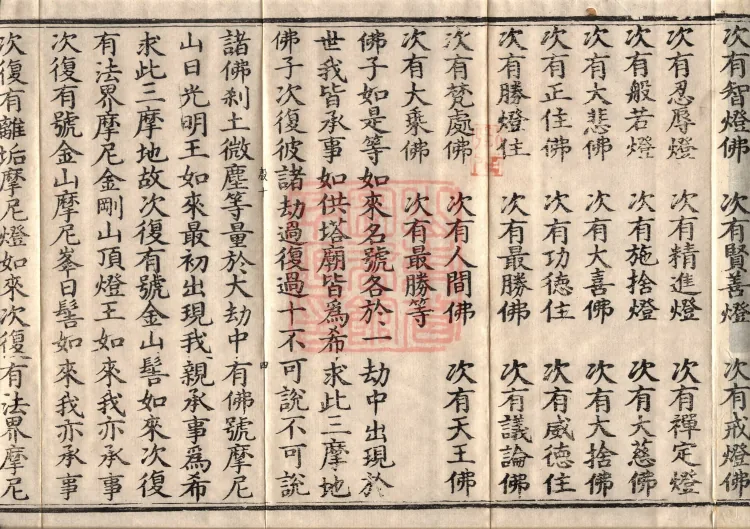 次有智燈佛　次有賢善燈　次有戒燈佛
次有忍辱燈　次有精進燈　次有禪定燈
次有般若燈　次有施捨燈　次有大慈佛
次有大悲佛　次有大喜佛　次有大捨佛
次有正住佛　次有功德住　次有威德住
次有勝燈住　次有最勝佛　次有議論佛
次有梵處佛　次有人間佛　次有天王佛
次有大乘佛　次有最勝等
佛子如是等如來名號各於一劫中出現於
世我皆承事如供塔廟皆為希求此三摩地
佛子次復彼諸劫過復過十不可說不可說
諸佛剎土微塵等量於大劫中有佛號摩尼
山日光明王如來最初出現我親承事為希
求此三摩地故次復有號金山髻如來次復
有法界摩尼金剛山頂燈王如來我亦承事
次復有號金山摩尼峯日髻如來我亦承事
次復有離垢摩尼燈如來次復有法界摩尼
四